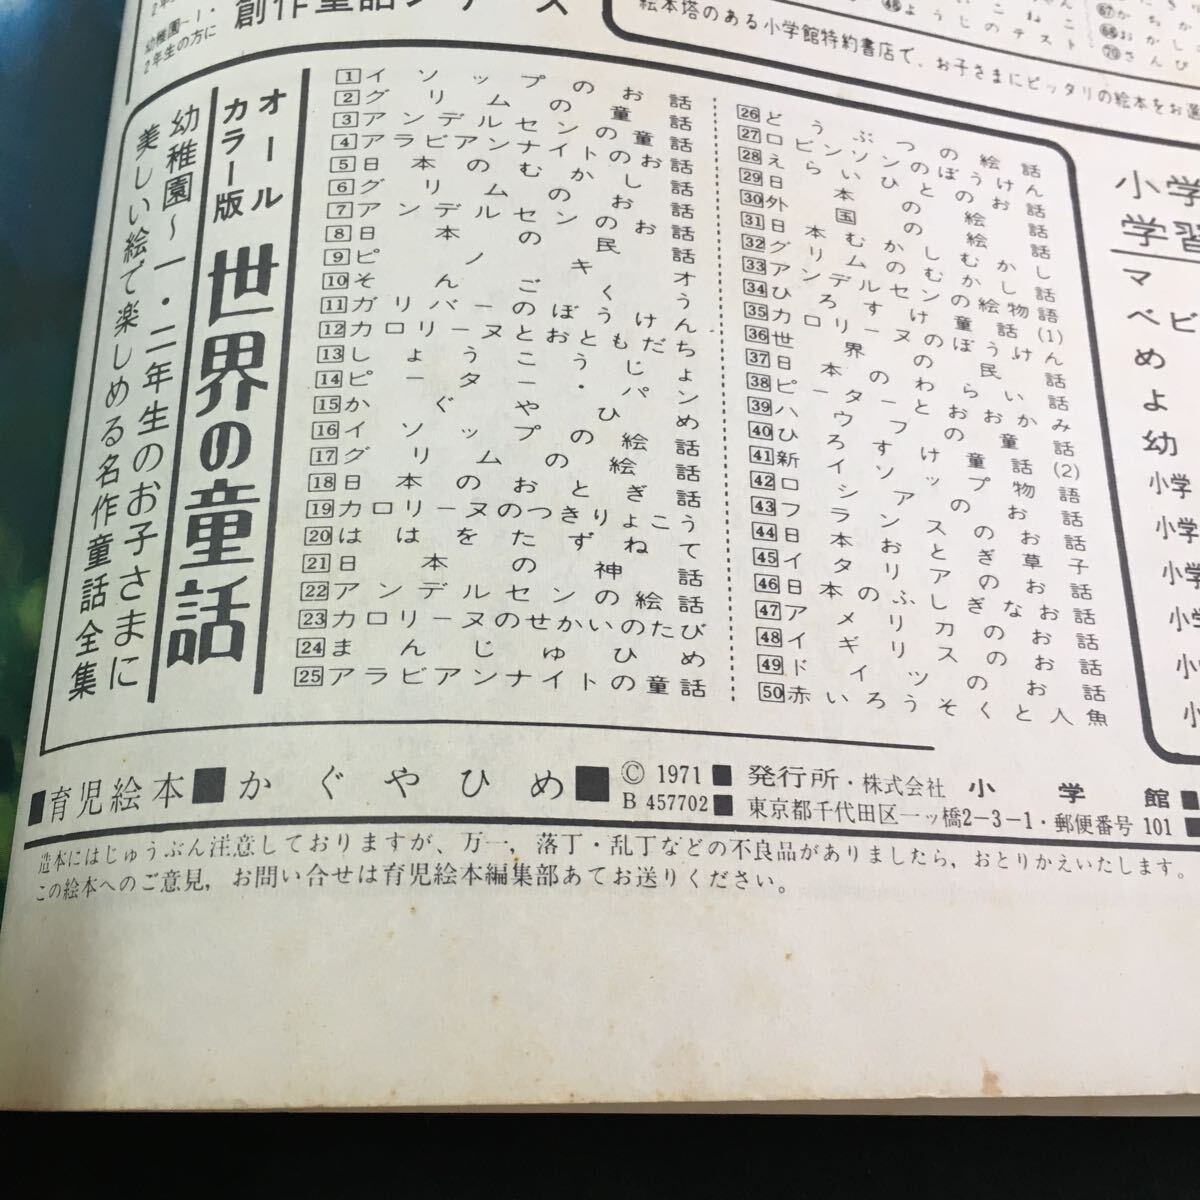 幼稚園−1・
2年生の方に
創作童話シリーズ
絵本塔のある小学館特約書店で、お子さまにピッタリの絵本をお選
オール
カラー版
世界の童話
幼稚園〜一・二年生のお子さまに
美しい絵で楽しめる名作童話全集
1 イソップのお話
2 グリムの童話
3 アンデルセンの童話
4 アラビアンナイトのお話
5 日本のむかし話
6 グリムのお話
7 アンデルセンのお話
8 日本の民話
9 ピノキオ
10 そんごくう
11 ガリバーのぼうけん
12 カロリーヌとおともだち
13 しょうこうじょ
14 ピーター・パン
15 かぐやひめ
16 イソップの絵話
17 グリムの絵話
18 日本のおとぎ話
19 カロリーヌのつきりょこう
20 ははをたずねて
21 日本の神話
22 アンデルセンの絵話
23 カロリーヌのせかいのたび
24 まんじゅひめ
25 アラビアンナイトの童話
26 どうぶつの絵話
27 ロビンソンのぼうけん
28 えらいひとのお話
29 日本の絵話
30 外国の絵話
31 日本むかしむかし
32 グリムのむかし話
33 アンデルセンの絵物語
34 ひろすけ童話(1)
35 カロリーヌのぼうけん
36 世界の民話
37 日本のわらい話
38 ピーターとおおかみ
39 ハウフの童話
40 ひろすけ童話(2)
41 新イソップ物語
42 ロシアのお話
43 フランスのお話
44 日本おとぎ草子
45 イタリアのお話
46 日本のふしぎなお話
47 アメリカのお話
48 イギリスのお話
49 ドイツのお話
50 赤いろうそくと人魚
小学
学習
マ
ベビ
め
よ
幼
小学
小学
小学
小学
■育児絵本■かぐやひめ■ © 1971 ■ 発行所・株式会社 小学館■
B 457702 ■ 東京都千代田区一ッ橋2−3−1・郵便番号 101 ■
造本にはじゅうぶん注意しておりますが、万一，落丁・乱丁などの不良品がありましたら，おとりかえいたします。
この絵本へのご意見，お問い合せは育児絵本編集部あてお送りください。